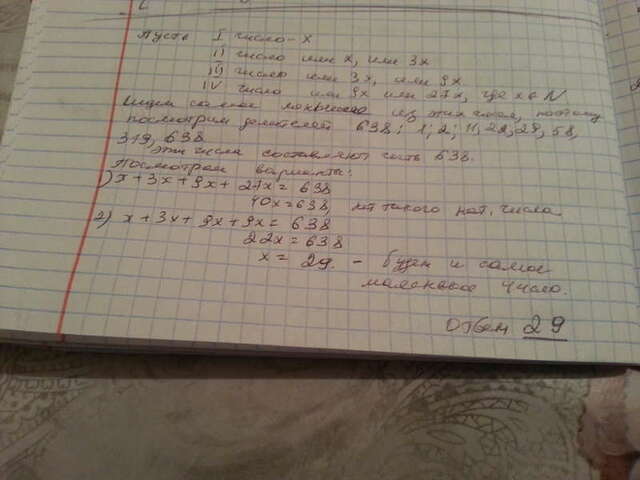 Пусть I число - x
II число или x, или 3x
III число или 3x, или 9x
IV число или 9x или 27x, где x ∈ N
Ищем самое из этих чисел, поэтому
посмотрим делителей 638: 1; 2; 11, 22, 29, 58,
319, 638.
Эти числа составляют часть 638.
Посмотрим варианты:
1) x + 3x + 9x + 27x = 638
40x = 638, нет такого нат. числа
2) x + 3x + 9x + 9x = 638
22x = 638
x = 29. - будет и самое
число.
Ответ 29